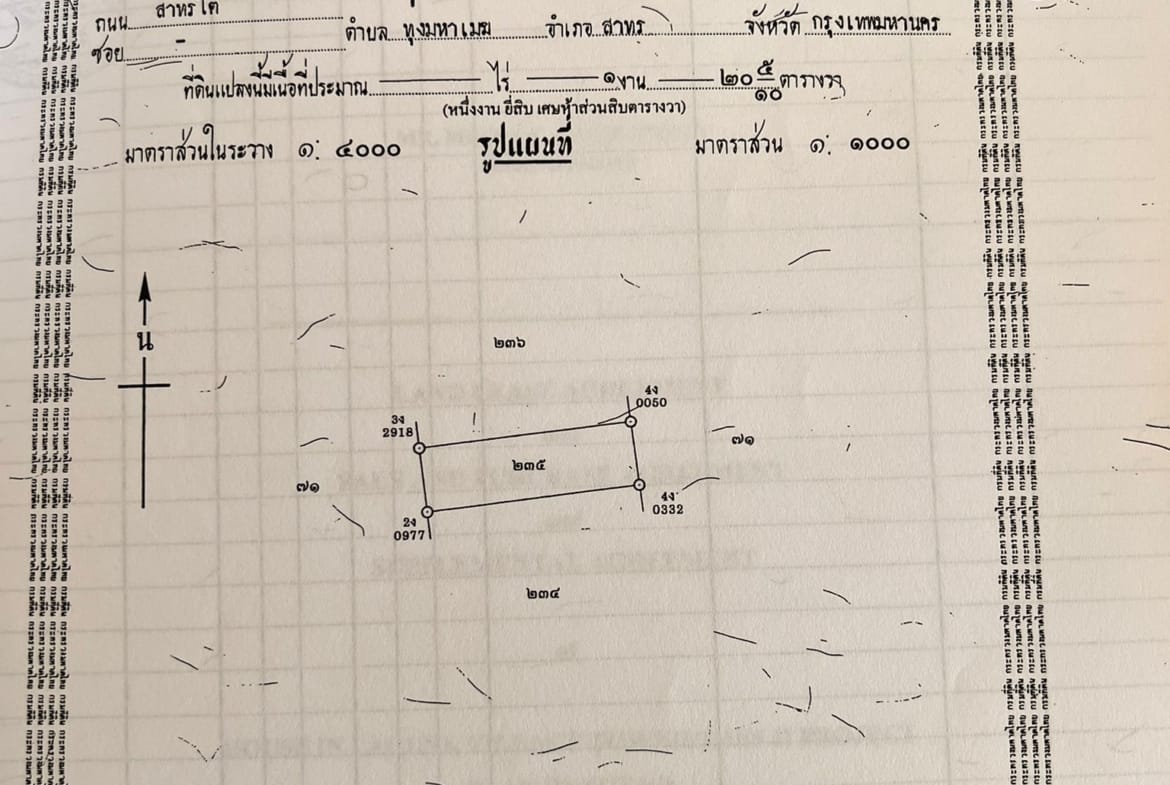 ถนน สาทรใต้
ซอย - ตำบล ทุ่งมหาเมฆ อำเภอ สาทร จังหวัด กรุงเทพมหานคร
ที่ดินแปลงนี้มีเนื้อที่ประมาณ ไร่ ๑ งาน ๒๐ ๕/๑๐ ตารางวา
(หนึ่งงาน ยี่สิบ เศษห้าส่วนสิบตารางวา)
มาตราส่วนในระวาง ๑: ๔๐๐๐ รูปแผนที่ มาตราส่วน ๑: ๑๐๐๐
น
๒๓๖
4ง
0050
3ง
2918
๗๑
๒๓๕
๗๑
4ง
0332
2ง
0977
๒๓๔